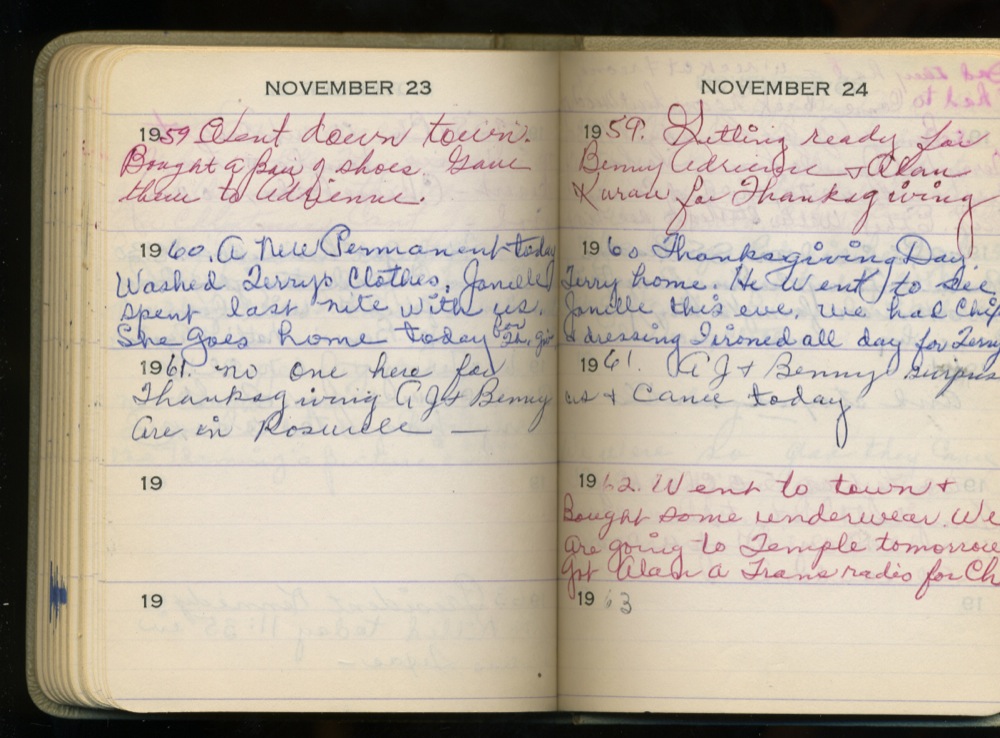 NOVEMBER 23
1959 Went down town.
Bought a pair of shoes. Gave
them to Adrienne.
1960. A New Permanent today
Washed Terrys Clothes. Janelle
spent last nite with us.
She goes home today for Th. giv
1961. no one here for
Thanksgiving AJ + Benny
are in Roswell —
19
19
NOVEMBER 24
1959. Getting ready for
Benny Adrienne + Alan
Karan for Thanksgiving
1960 Thanksgiving Day.
Terry home. He Went to see
Janelle this eve. we had Chip
+ dressing I ironed all day for Terry
1961. AJ + Benny surpris
us + Came today
1962. Went to town +
Bought some underwear. We
are going to Temple tomorrow
Got Alan a Trans radio for Ch
1963